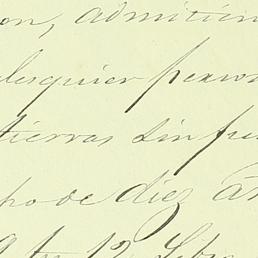 on, admitien
lesquier person
tierras sin per
ho de diez añ
12 Febr